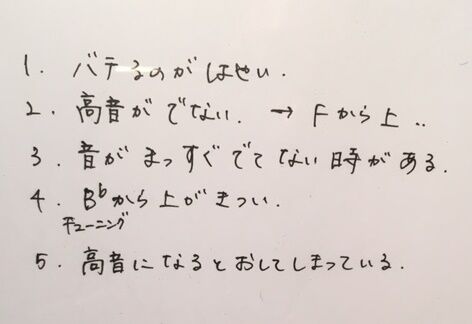 1. バテるのがはやい.
2. 高音がでない. → Fから上..
3. 音がまっすぐでてない時がある.
4. B♭から上がきつい.
チューニング
5. 高音になるとおしてしまっている.